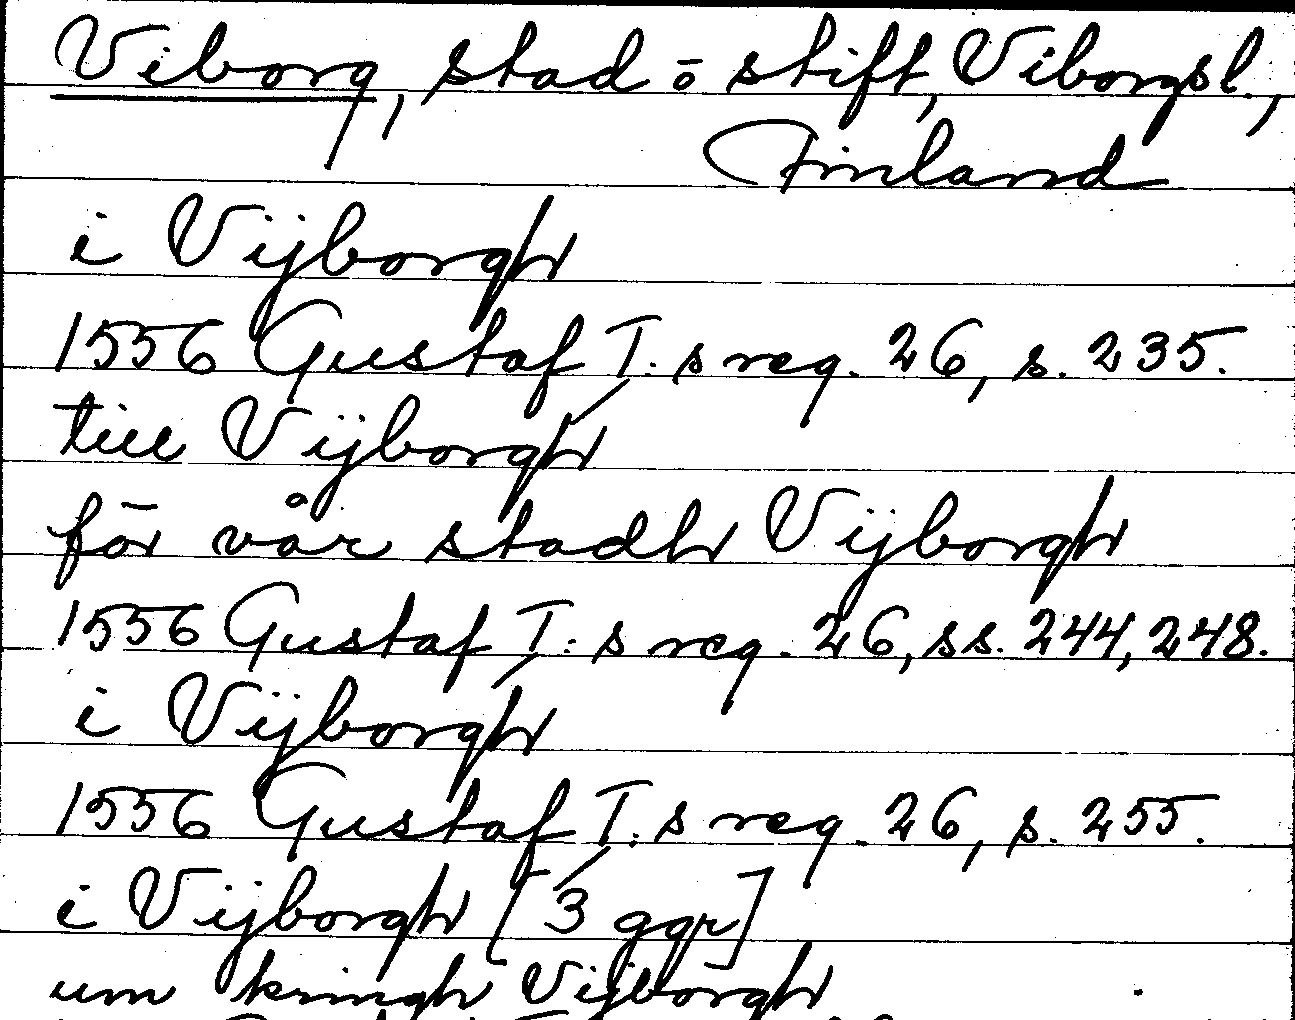 Viborg, stad o stift, Viborgsl.,
Finland
i Vijborgh
1556 Gustaf I:s reg. 26, s. 235.
till Vijborgh
för vår stadh Vijborgh
1556 Gustaf I:s reg. 26, ss. 244, 248.
i Vijborgh
1556 Gustaf I:s reg. 26, s. 255.
i Vijborgh [3 ggr]
um kringh Vijborgh